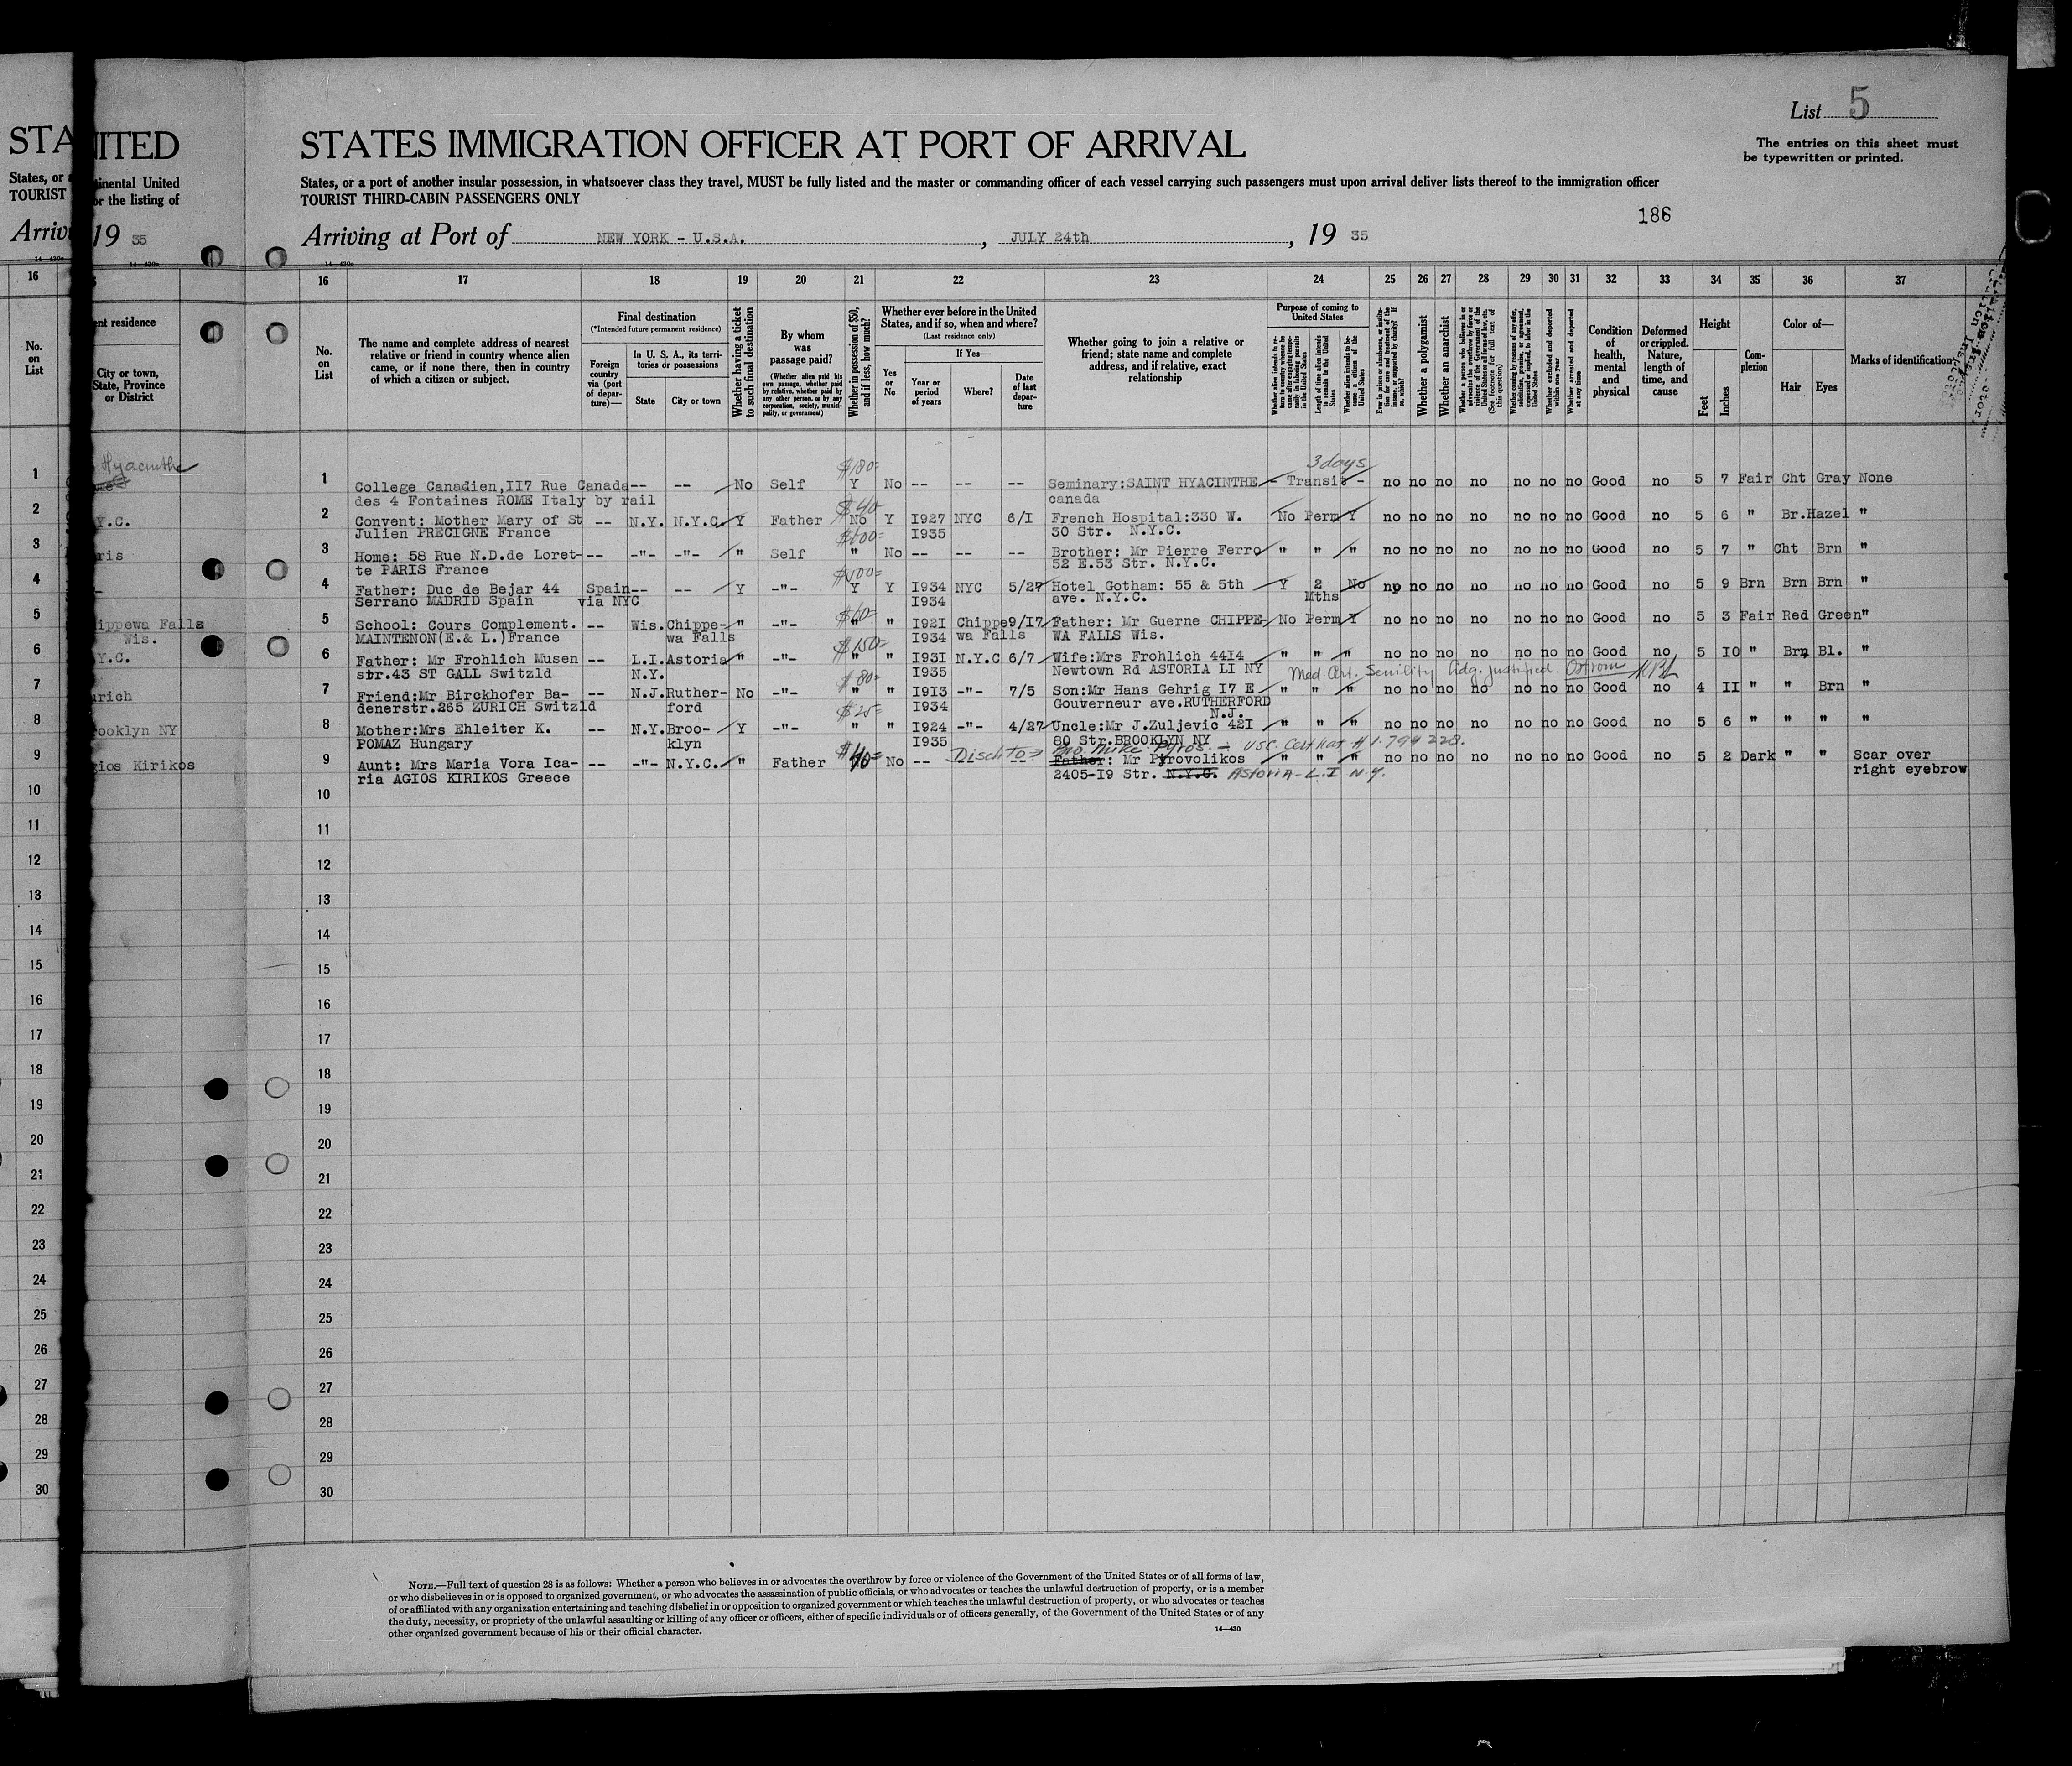 List 5
STATES IMMIGRATION OFFICER AT PORT OF ARRIVAL
The entries on this sheet must
be typewritten or printed.
States, or a port of another insular possession, in whatsoever class they travel, MUST be fully listed and the master or commanding officer of each vessel carrying such passengers must upon arrival deliver lists thereof to the immigration officer
TOURIST THIRD-CABIN PASSENGERS ONLY
186
Arriving at Port of NEW YORK - U.S.A. , JULY 24th , 19 35
16 17 18 19 20 21 22 23 24 25 26 27 28 29 30 31 32 33 34 35 36 37
No. on List
The name and complete address of nearest relative or friend in country whence alien came, or if none there, then in country of which a citizen or subject.
Final destination
(*Intended future permanent residence)
Foreign country via (port of departure)—
In U. S. A., its territories or possessions
State
City or town
Whether having a ticket to such final destination
By whom was passage paid?
(Whether alien paid his own passage, whether paid by relative, whether paid by any other person, or by any corporation, society, municipality, or government)
Whether in possession of $50, and if less, how much?
Whether ever before in the United States, and if so, when and where?
(Last residence only)
Yes or No
If Yes—
Year or period of years
Where?
Date of last departure
Whether going to join a relative or friend; state name and complete address, and if relative, exact relationship
Purpose of coming to United States
Length of time alien intends to remain in the United States
Whether alien intends to become a citizen of the United States
Whether a polygamist
Whether an anarchist
Condition of health, mental and physical
Deformed or crippled. Nature, length of time, and cause
Height
Feet
Inches
Complexion
Color of—
Hair
Eyes
Marks of identification
$180= 3 days
1 College Canadien,II7 Rue Canada-- -- No Self Y No -- -- -- Seminary:SAINT HYACINTHE - Transit - no no no no no no no Good no 5 7 Fair Cht Gray None
des 4 Fontaines ROME Italy by rail canada
$40
2 Convent: Mother Mary of St -- N.Y. N.Y.C. Y Father No Y I927 NYC 6/I French Hospital:330 W. No Perm Y no no no no no no no Good no 5 6 " Br. Hazel "
Julien PRECIGNE France I935 30 Str. N.Y.C.
3 Home: 58 Rue N.D.de Loret- -- -"- -"- " Self " No -- -- -- Brother: Mr Pierre Ferro " " " no no no no no no no Good no 5 7 " Cht Brn "
te PARIS France 52 E.53 Str. N.Y.C.
4 Father: Duc de Bejar 44 Spain-- -- Y -"- Y Y I934 NYC 5/27 Hotel Gotham: 55 & 5th Y 2 No no no no no no no no Good no 5 9 Brn Brn Brn "
Serrano MADRID Spain via NYC I934 ave. N.Y.C. Mths
5 School: Cours Complement. -- Wis. Chippe- " -"- " " I92I Chippe 9/I7 Father: Mr Guerne CHIPPE- No Perm Y no no no no no no no Good no 5 3 Fair Red Green "
MAINTENON(E.& L.)France wa Falls I934 wa Falls WA FALLS Wis.
$150=
6 Father: Mr Frohlich Musen -- L.I. Astoria " -"- " " I93I N.Y.C 6/7 Wife:Mrs Frohlich 44I4 " " " no no no no no no no Good no 5 IO " Brn Bl. "
str.43 ST GALL Switzld N.Y. I935 Newtown Rd ASTORIA LI NY Med Cert. Senility
$80=
7 Friend:Mr Birckhofer Ba- -- N.J. Ruther- No -"- " " I9I3 -"- 7/5 Son:Mr Hans Gehrig I7 E " " " no no no no no no no Good no 4 II " " Brn "
denerstr.265 ZURICH Switzld ford I934 Gouverneur ave.RUTHERFORD
N.J.
$25=
8 Mother:Mrs Ehleiter K. -- N.Y. Broo- Y -"- " " I924 -"- 4/27 Uncle:Mr J.Zuljevic 42I " " " no no no no no no no Good no 5 6 " " " "
POMAZ Hungary klyn I935 80 Str.BROOKLYN NY
Disch to Bro. Mike Pyros. - USC. Cert Nat # 1.794228.
9 Aunt: Mrs Maria Vora Ica- -- -"- N.Y.C. " Father $40= No -- -- -- Father: Mr Pyrovolikos " " " no no no no no no no Good no 5 2 Dark " " Scar over
ria AGIOS KIRIKOS Greece 2405-I9 Str. N.Y.C. Astoria - L.I N.Y. right eyebrow
10
11
12
13
14
15
16
17
18
19
20
21
22
23
24
25
26
27
28
29
30
NOTE.—Full text of question 28 is as follows: Whether a person who believes in or advocates the overthrow by force or violence of the Government of the United States or of all forms of law,
or who disbelieves in or is opposed to organized government, or who advocates the assassination of public officials, or who advocates or teaches the unlawful destruction of property, or is a member
of or affiliated with any organization entertaining and teaching disbelief in or opposition to organized government or which teaches the unlawful destruction of property, or who advocates or teaches
the duty, necessity, or propriety of the unlawful assaulting or killing of any officer or officers, either of specific individuals or of officers generally, of the Government of the United States or of any
other organized government because of his or their official character.
14—430